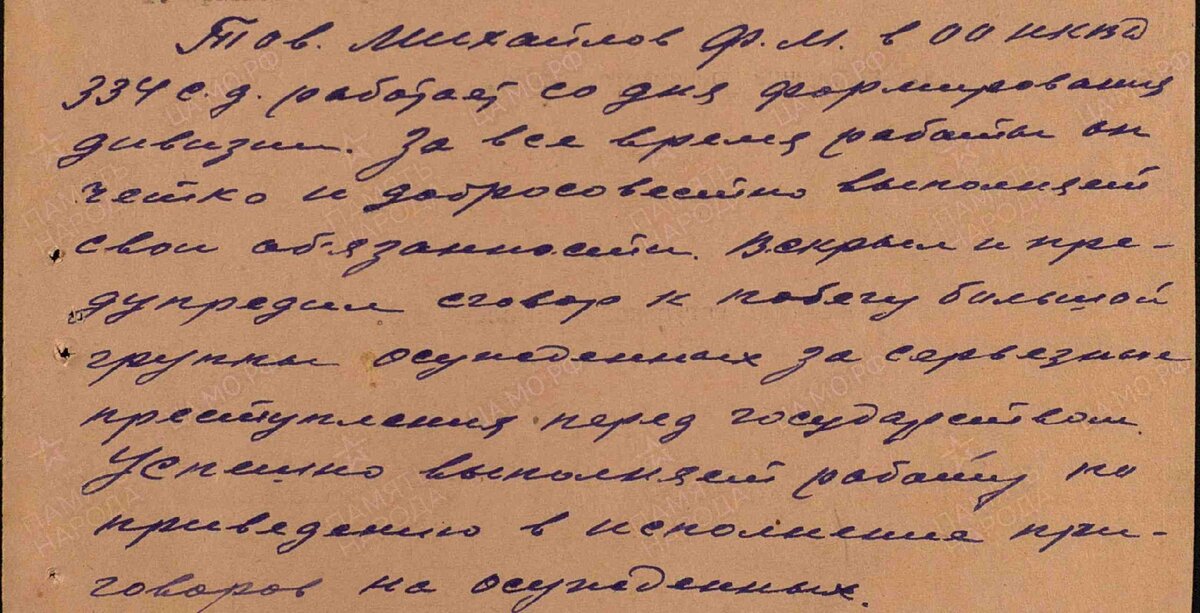 Тов. Михайлов Ф.М. в ОО НКВД
334 с.д. работает со дня формирования
дивизии. За все время работы он
четко и добросовестно выполняет
свои обязанности. Вскрыл и пре-
дупредил сговор к побегу большой
группы осужденных за серьезные
преступления перед государством.
Успешно выполняет работу по
приведению в исполнение при-
говоров на осужденных.